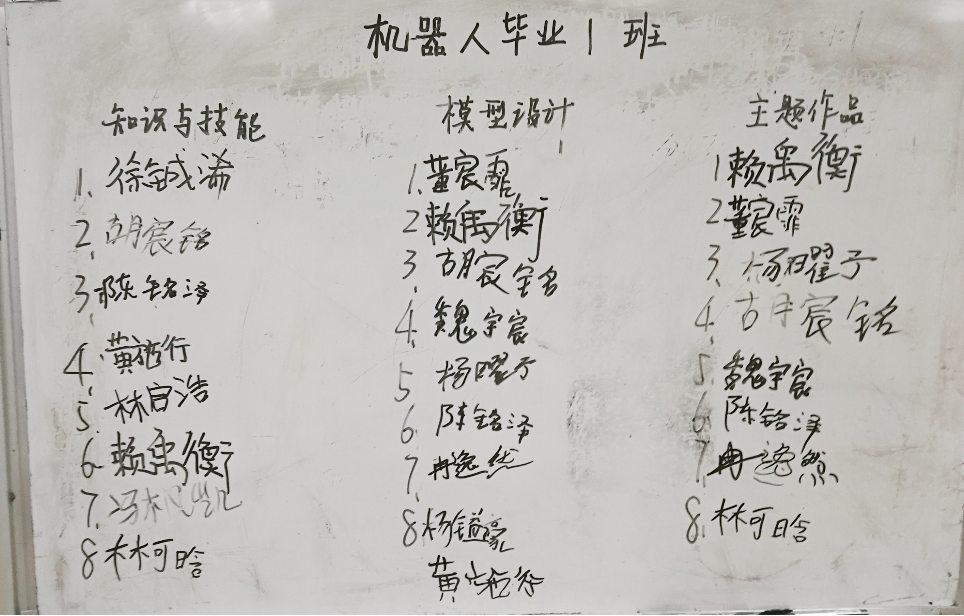 机器人毕业1班
知识与技能
1. 徐铖浠
2. 胡宸铭
3. 陈铭泽
4. 黄行
5. 林浩
6. 赖禹衡
7. 冯凯
8 林可晗
模型设计
1. 董宸霏
2 赖禹衡
3. 胡宸铭
4. 魏宇宸
5 杨曜宁
6. 陈铭泽
7. 冉逸然
8 杨镒豪
黄行
主题作品
1 赖禹衡
2 董宸霏
3. 杨曜子
4. 胡宸铭
5. 魏宇宸
6. 陈铭泽
7. 冉逸然
8. 林可晗